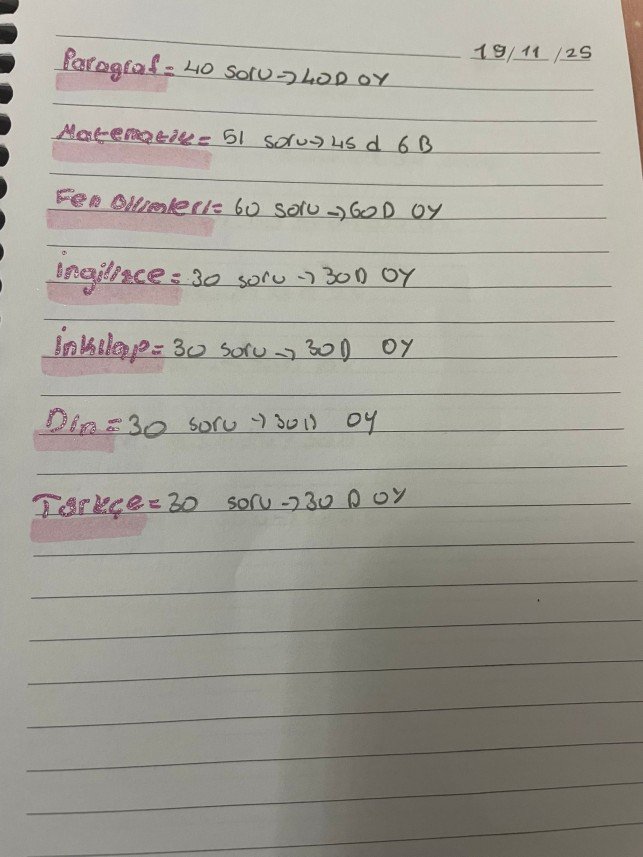 19/11/25
Paragraf = 40 soru → 40D 0Y
Matematik = 51 soru → 45 d 6 B
Fen Bilimleri = 60 soru → 60D 0Y
ingilizce = 30 soru → 30D 0Y
inkılap = 30 soru → 30D 0Y
Din = 30 soru → 30D 0Y
Türkçe = 30 soru → 30 D 0Y